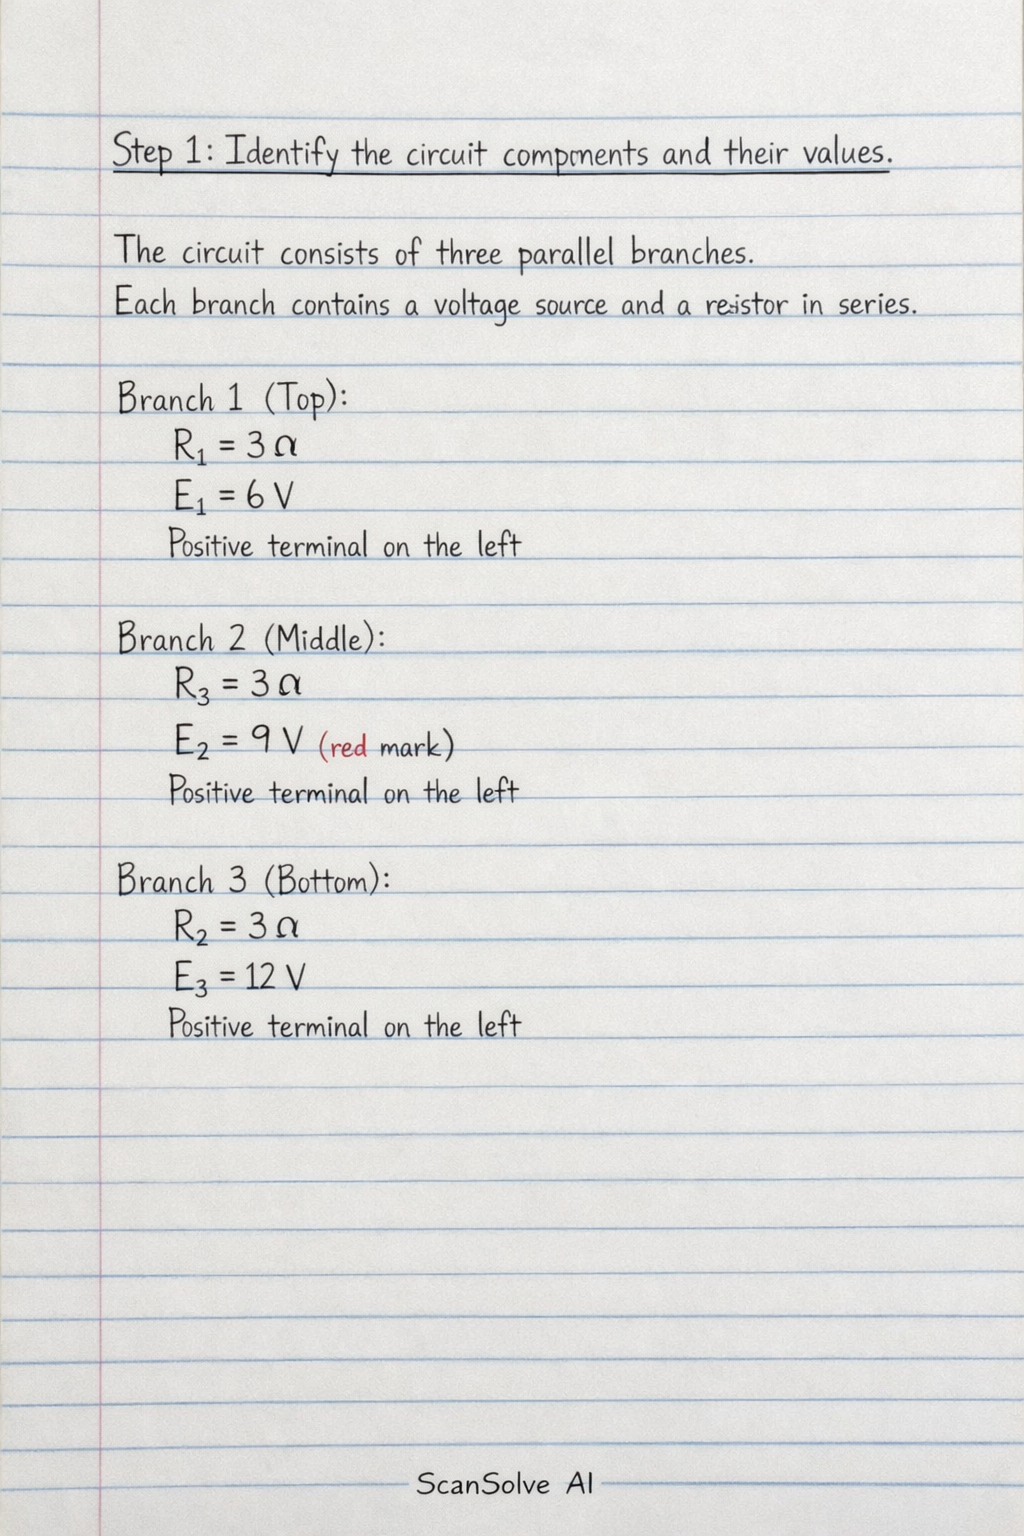 Step 1: Identify the circuit compments and their values.
The circuit consists of three parallel branches.
Each branch contains a voltage source and a resistor in series.
Branch 1 (Top):
R₁ = 3 Ω
E₁ = 6 V
Positive terminal on the left
Branch 2 (Middle):
R₃ = 3 Ω
E₂ = 9 V (red mark)
Positive terminal on the left
Branch 3 (Bottom):
R₂ = 3 Ω
E₃ = 12 V
Positive terminal on the left
ScanSolve AI